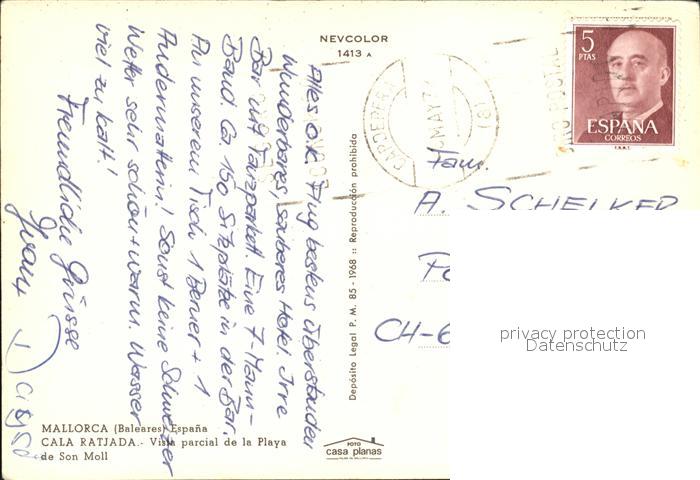 NEVCOLOR
1413 A
5
PTAS
ESPAÑA
CORREOS
F.N.M.T.
Alles o.k. Flug bestens überstanden
Wunderbares, sauberes Hotel. Irre
Bar mit Tanzparkett. Eine 7-Mann-
Band. Ca. 150 Sitzplätze in der Bar.
An unserem Tisch 1 Berner + 1
Andermatterin! Sonst keine Schweizer
Wetter sehr schön + warm. Wasser
viel zu kalt!
Freundliche Grüsse
Depósito Legal P. M. 85 - 1968 :: Reproducción prohibida
Fam.
A. SCHELKER
CH-6
privacy protection
Datenschutz
MALLORCA (Baleares) España
CALA RATJADA.- Vista parcial de la Playa
de Son Moll
FOTO
casa planas